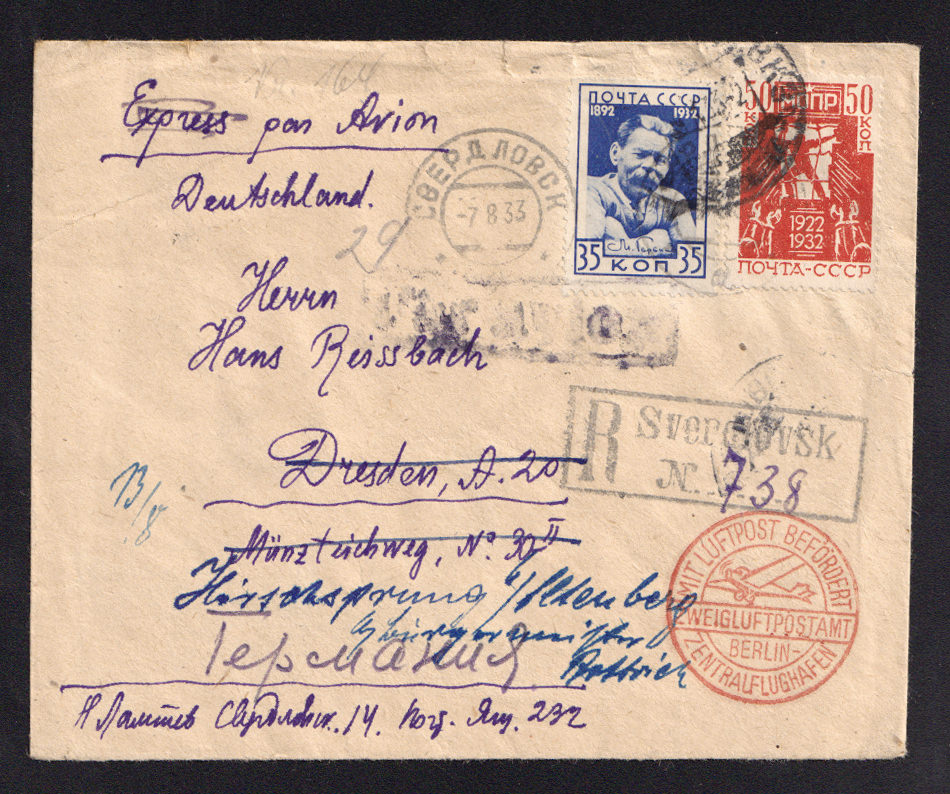 Express par Avion
Deutschland.
29
ПОЧТА СССР
1892 1932
М. Горький
35 КОП 35
50 50
КОП КОП
1922
1932
ПОЧТА-СССР
СВЕРДЛОВСК
-7 8 33
Herrn
Hans Reissbach
Dresden, A. 20
Münzteichweg, No 30 II
13/8
R Sverdlovsk
N. 738
Hirschsprung b/Altenberg
b/Bürgermeister
Германия
MIT LUFTPOST BEFÖRDERT
ZWEIGLUFTPOSTAMT
BERLIN-
ZENTRALFLUGHAFEN
Свердловск. 14. поч. Ящ. 232